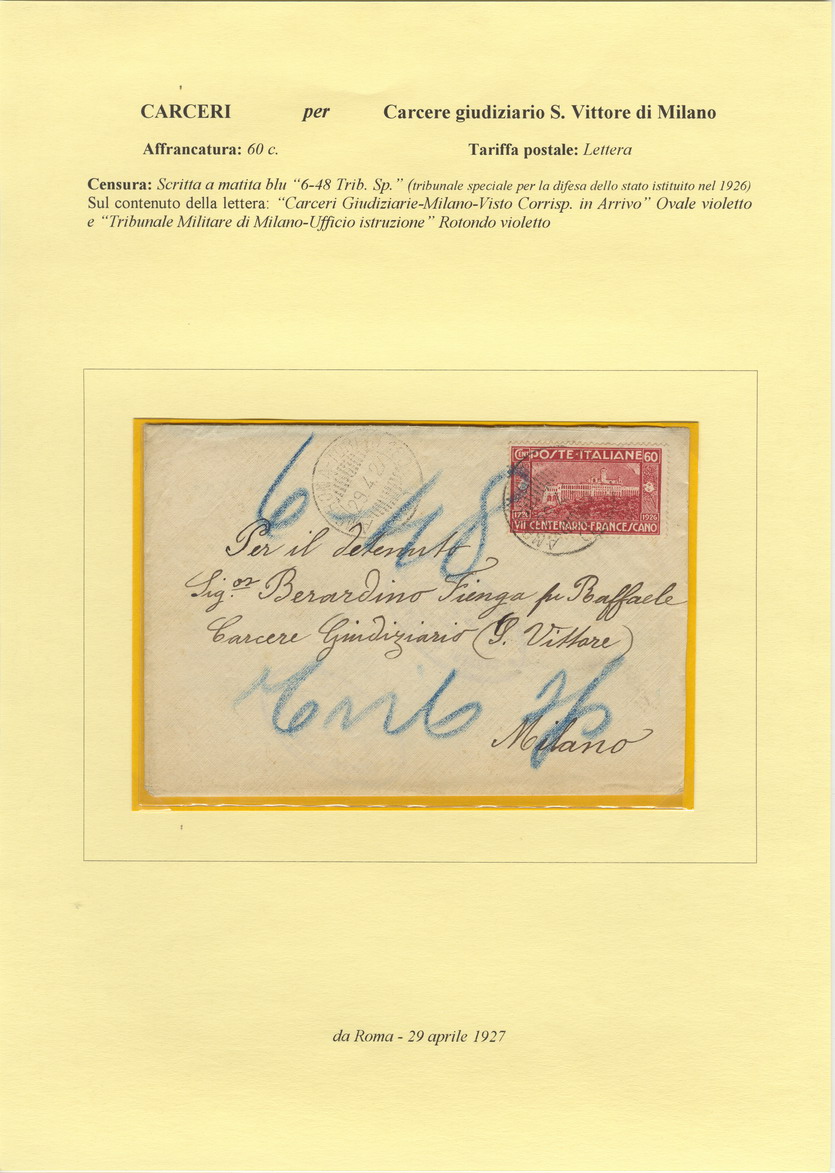 CARCERI per Carcere giudiziario S. Vittore di Milano
Affrancatura: 60 c. Tariffa postale: Lettera
Censura: Scritta a matita blu “6-48 Trib. Sp.” (tribunale speciale per la difesa dello stato istituito nel 1926)
Sul contenuto della lettera: “Carceri Giudiziarie-Milano-Visto Corrisp. in Arrivo” Ovale violetto
e “Tribunale Militare di Milano-Ufficio istruzione” Rotondo violetto
29.4.27
CENT POSTE·ITALIANE 60
1226 1926
VII CENTENARIO·FRANCESCANO
6-48
Per il detenuto
Sig.or Berardino Fienga fu Raffaele
Carcere Giudiziario (S. Vittore)
Trib Sp
Milano
da Roma - 29 aprile 1927